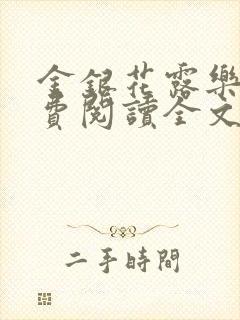 金銀花露樂
費閱讀全文
二手時間